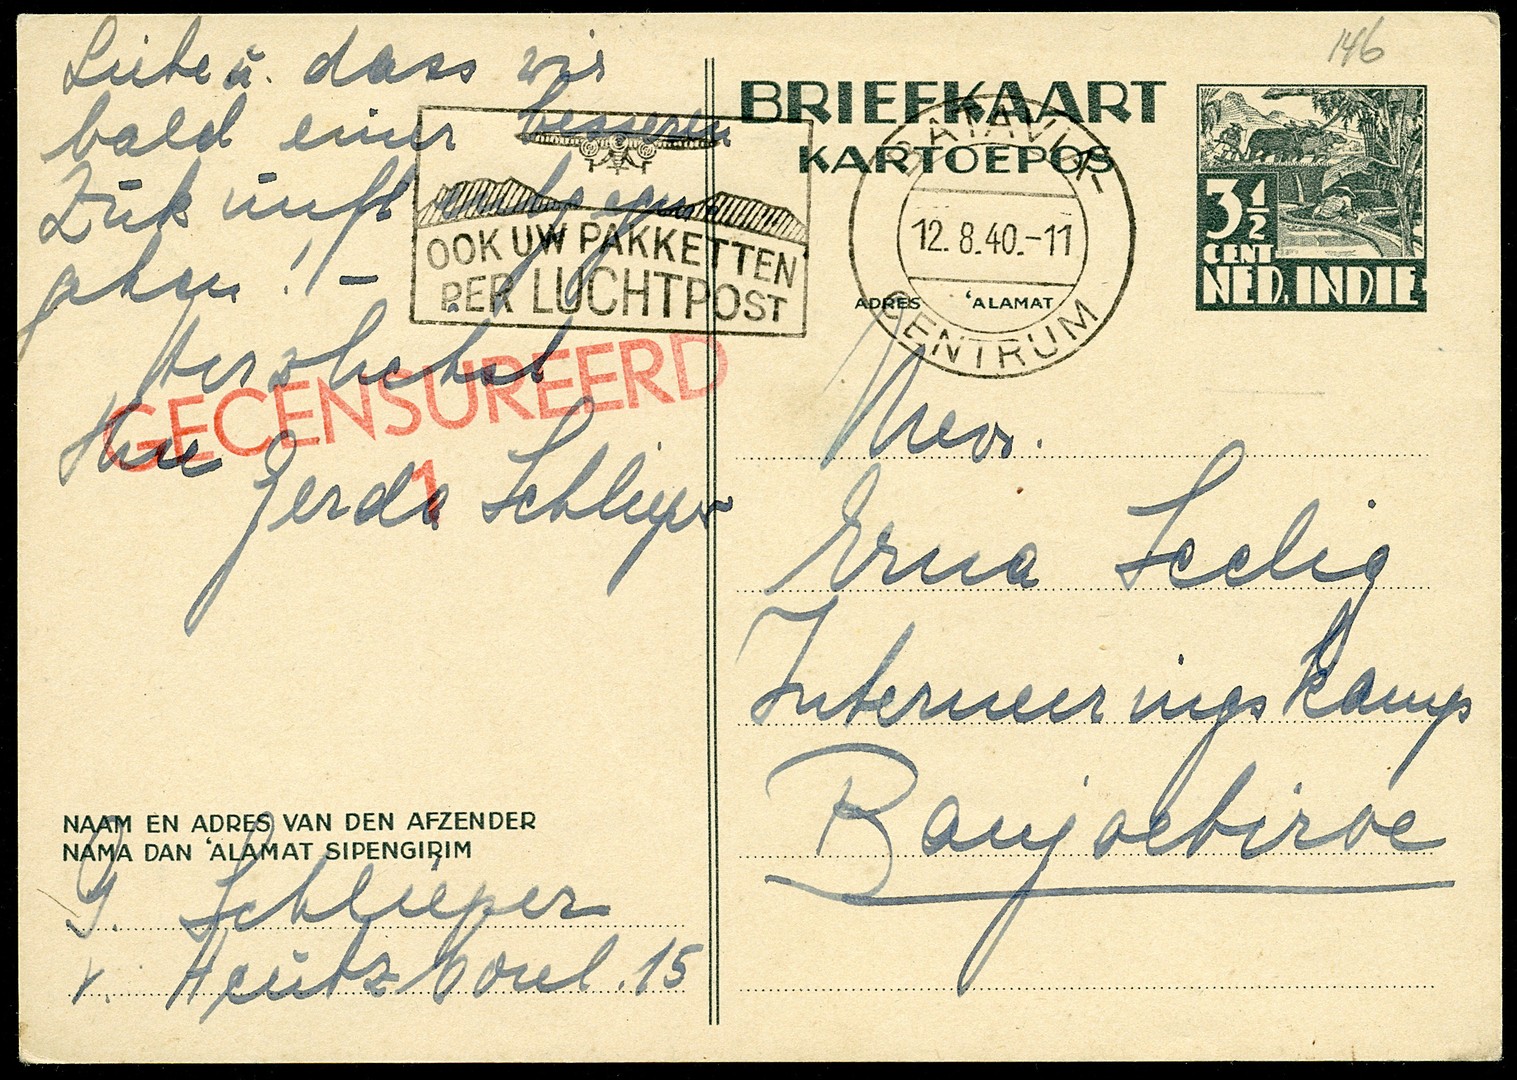 Liebe u. dass wir
bald einer besseren
Zukunft entgegen
gehen! -
Herzlichst
Ihre Gerda Schlieper
OOK UW PAKKETTEN
PER LUCHTPOST
GECENSUREERD
1
NAAM EN ADRES VAN DEN AFZENDER
NAMA DAN 'ALAMAT SIPENGIRIM
G. Schlieper
v. Heutz boul. 15
146
BRIEFKAART
KARTOEPOS
BATAVIA-
12.8.40.-11
CENTRUM
3 1/2
CENT
NED. INDIE
ADRES 'ALAMAT
Mevr.
Erna Seelig
Interneeringskamp
Banjoebiroe